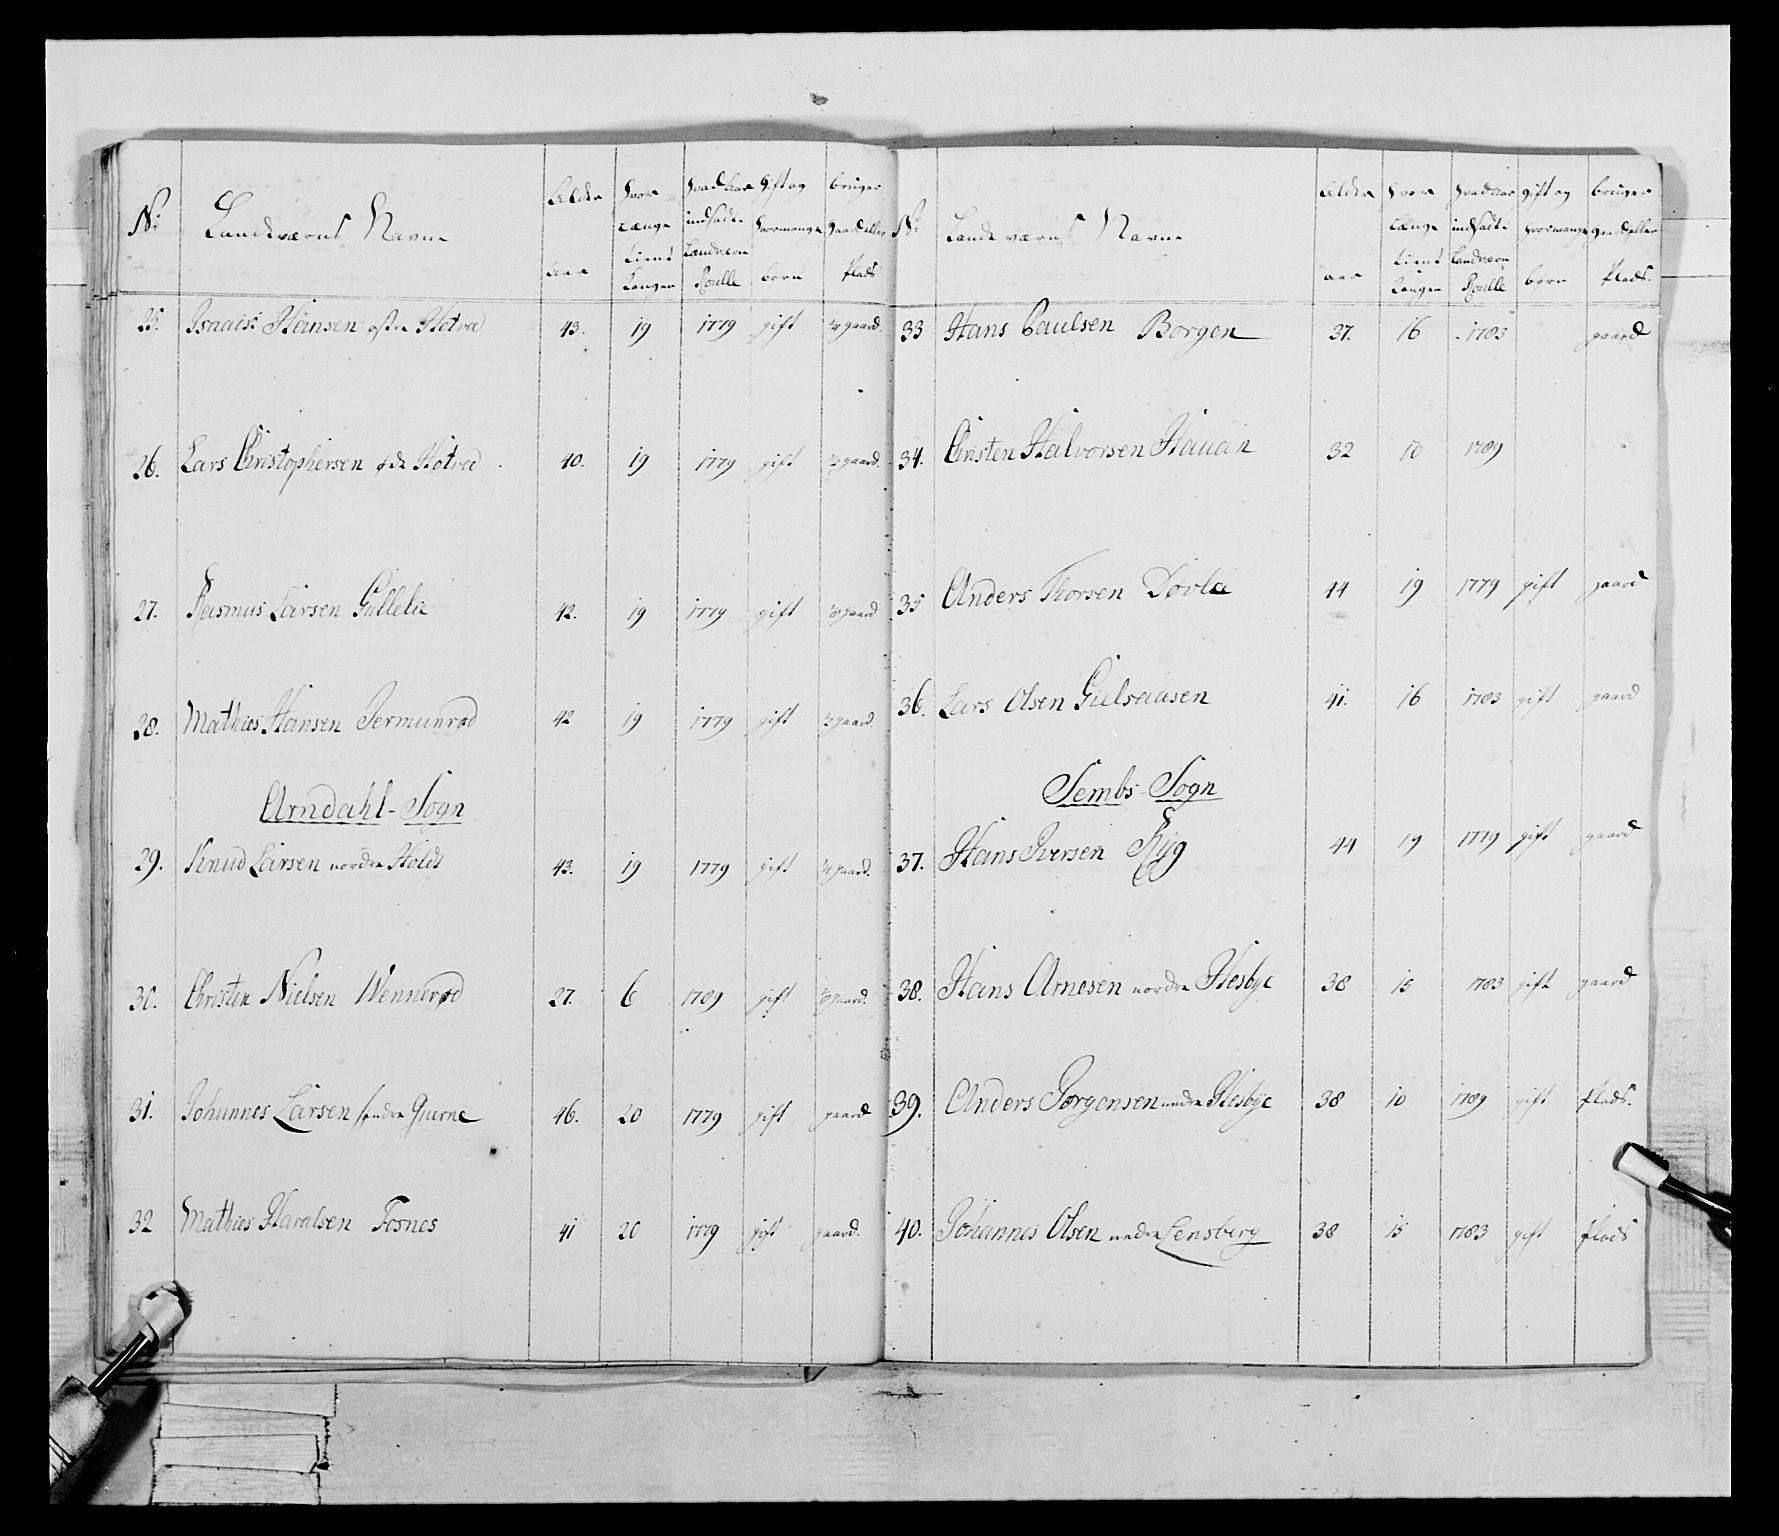 No: Landeværns Navne Alder aar hvor længe tient Kongen hvad Aar indsadt i Landværn Roulle gift og hvormange born bruger gaard eller Plads
25. Isaach Hansen østre Hotved 43. 19 1779 gift 1/4 gaard.
26. Lars Christophersen øde Hotved 40. 19 1779 gift 1/2 gaard.
27. Rasmus Larsen Gullelie 42. 19 1779 gift gaard
28. Mathies Hansen Jermunrød 42 19 1779 gift 1/2 gaard.
Arndahl-Sogn
29. Knud Larsen nordre Holdt 43. 19 1779 gift gaard.
30. Christen Nielsen Wennerød 27. 6 1789 gift gaard.
31. Johannes Larsen søndre Querne 46. 20 1779 gift gaard
32 Mathies Haralsen Fosnes 41 20 1779 gift gaard.
No: Landeværns Navne Alder aar hvor længe tient Kongen hvad aar indsadt i Landværn Roulle gift og hvormange born bruger gaard eller Plads.
33 Hans Paulsen Borgen 37. 16 1783 gaard
34. Christen Halvorsen Hauan 32 10 1789
35 Anders Thorsen Dovle 44 19 1779 gift gaard
36. Lars Olsen Gulsaasen 41. 16 1783 gift gaard
Sembs-Sogn
37. Hans Iversen Ryg 44 19 1779 gift gaard
38. Hans Arnesen nordre Hesbye 38 15 1783 gift gaard
39. Anders Jørgensen nedre Hesbye 38 10 1789 gift Plads.
40. Johannes Olsen nedre Lensberg 38 15 1783 gift Plads